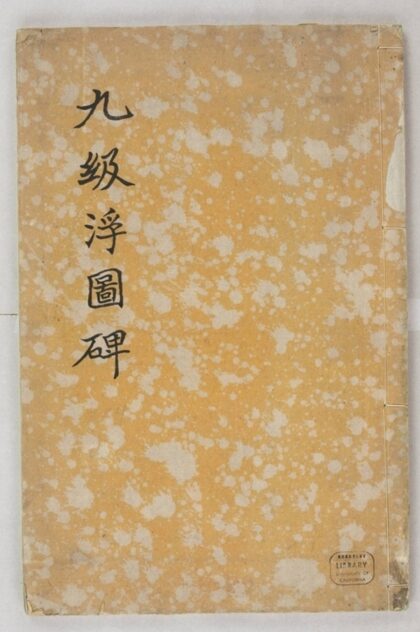 九級浮圖碑
LIBRARY
UNIVERSITY OF
CALIFORNIA